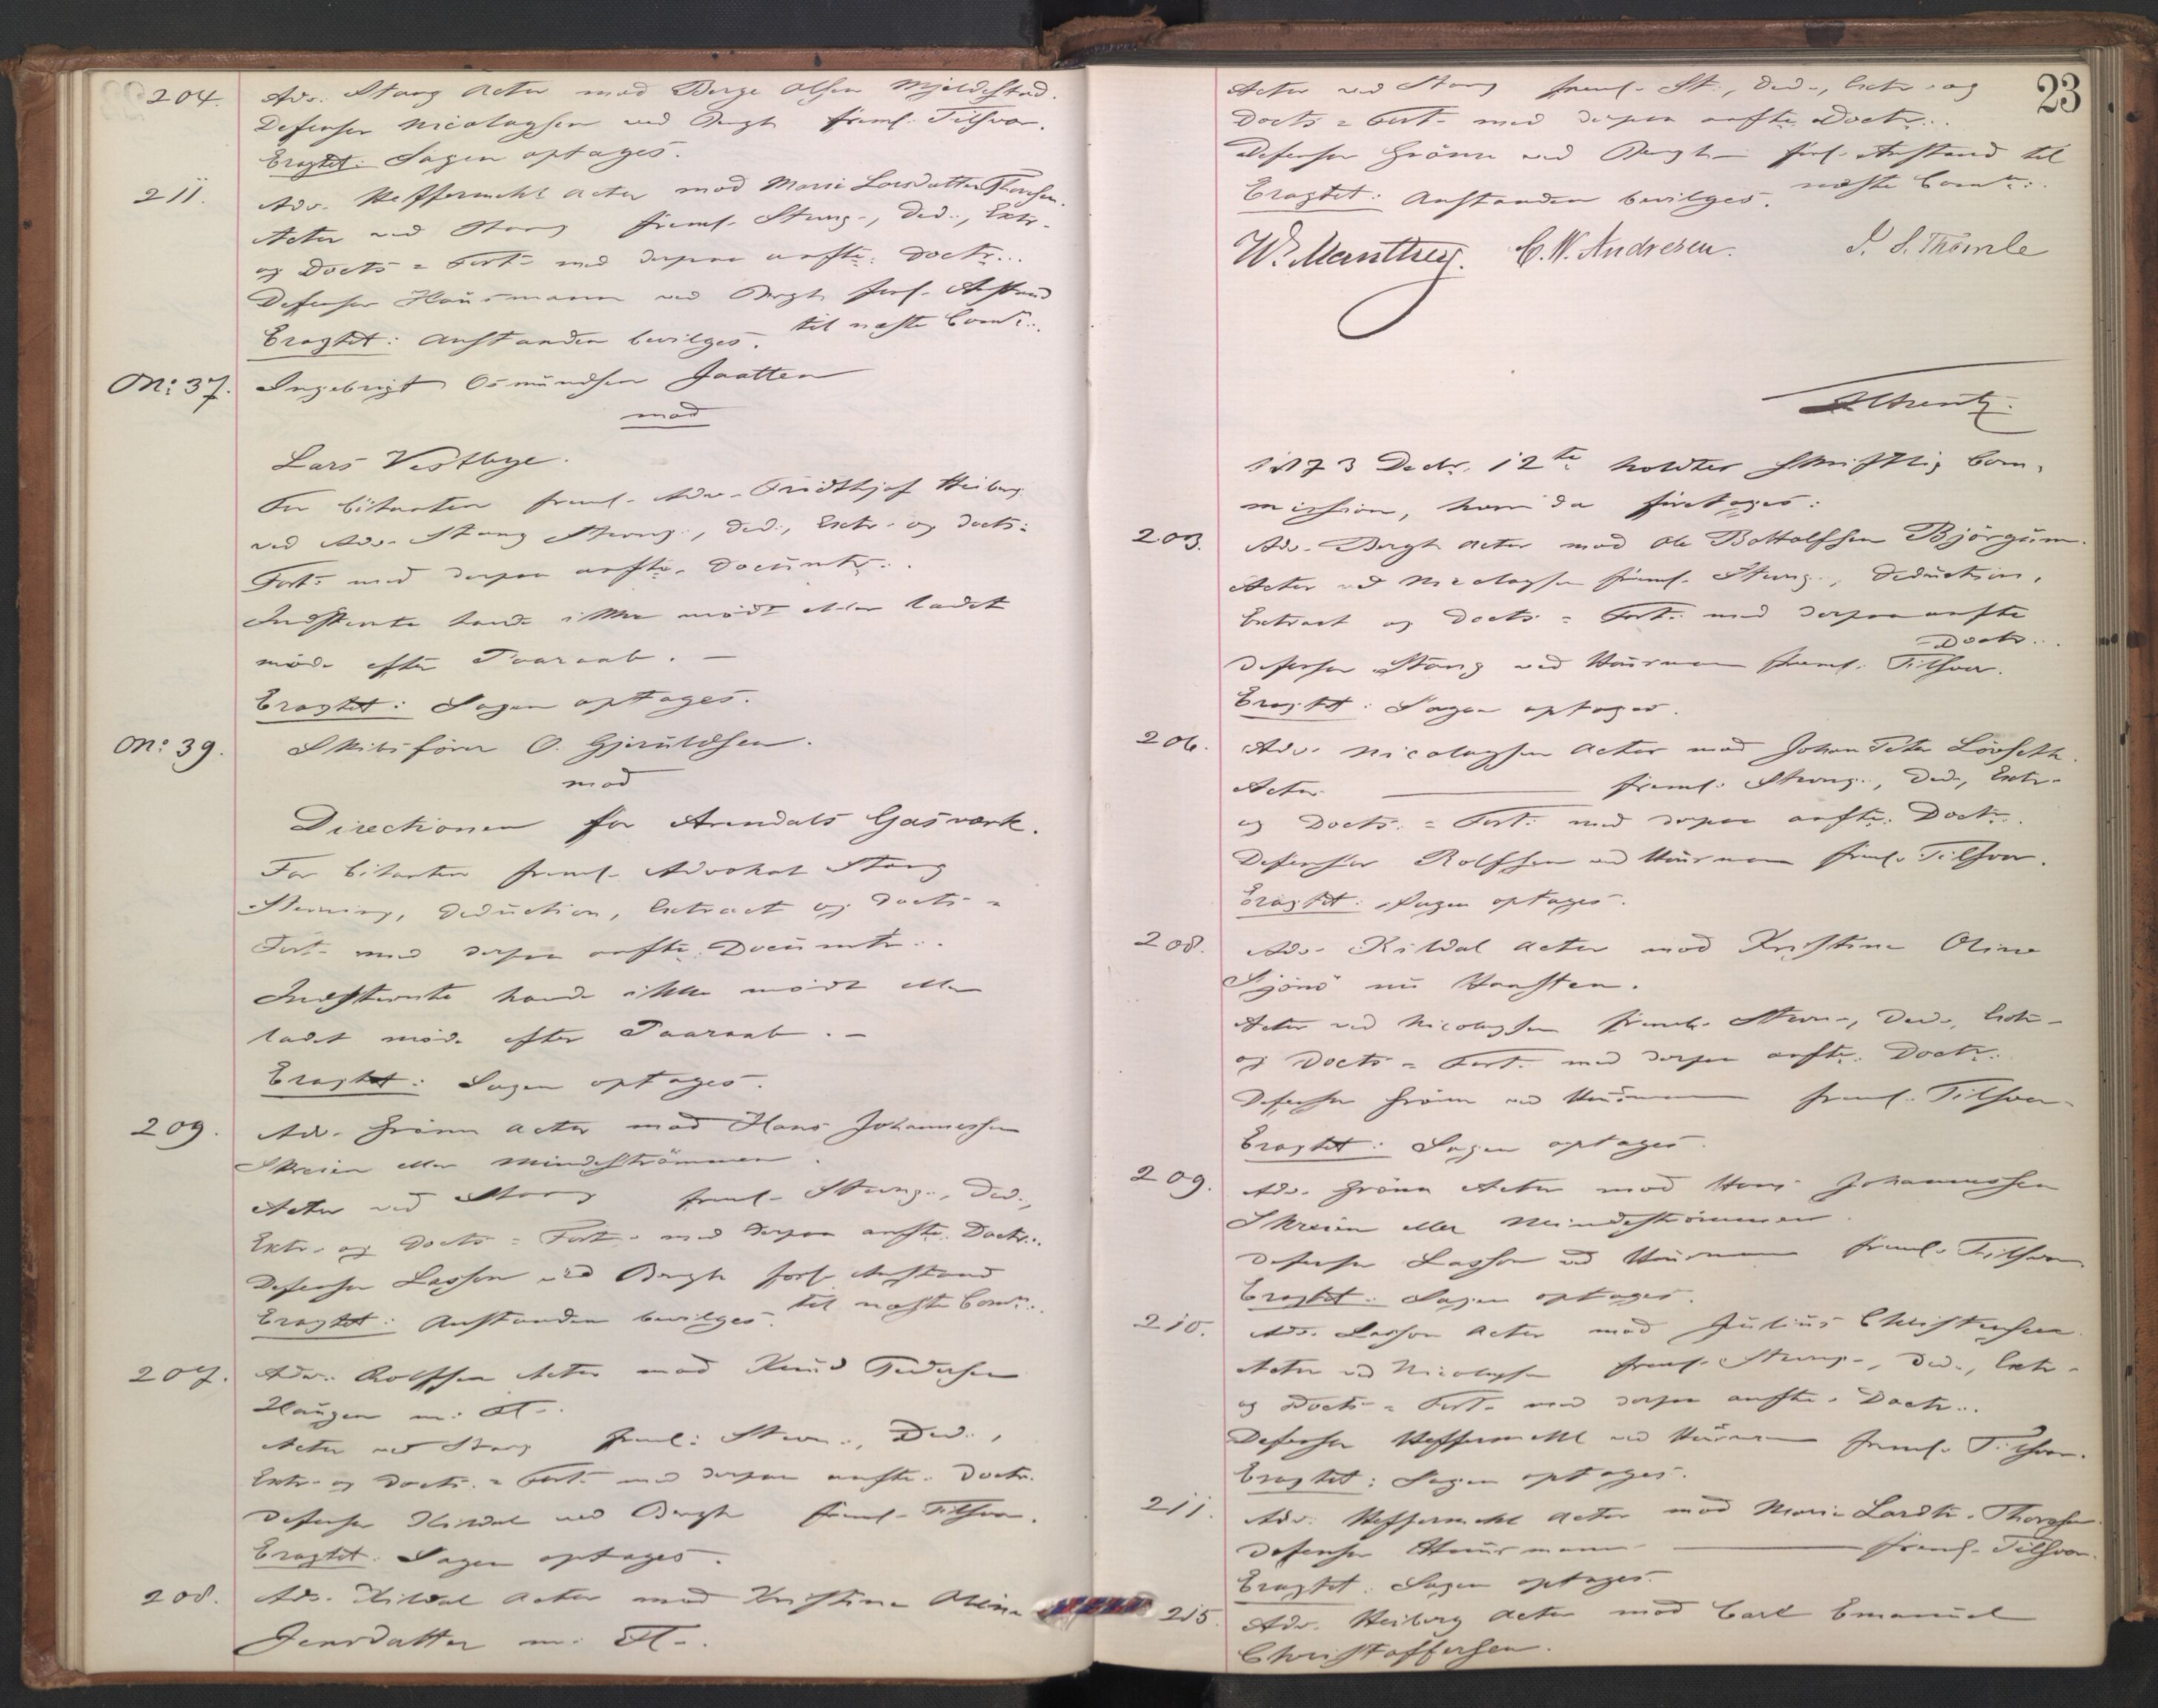 204. Adv. Stang Actor mod Børge Olsen Mjeldestad.
Defensor Nicolaysen ved Bergh freml. Tilsvar.
Eragtet: Sagen optages.
211. Adv. Heffermehl Actor mod Marie Larsdatter Thoresen.
Actor ved Stang freml. Stevng., Ded., Extr.
og Docts = Fort. med derpaa anfte. Doctr..
Defensor Håusmann ved Bergh forl. Anstand
til næste Comn..
Eragtet: Anstanden bevilges.
No: 37. Ingebrigt Osmundsen Jaatten
mod
Lars Vestbye.
For Citanten freml. Adv. Fridthjof Heiberg
ved Adv. Stang Stevng., Ded., Extr. og Docts=
Fort. med derpaa anfte. Documtr..
Indstevnte havde ikke mødt eller ladet
møde efter Paaraab. —
Eragtet: Sagen optages.
No: 39. Skibsfører O. Gjeruldsen.
mod
Directionen for Arendals Gasværk.
For Citanten freml. Advokat Stang
Stevning, Deduction, Extract og Docts =
Fort. med derpaa anfte. Documtr..
Indstevnte havde ikke mødt eller
ladet møde efter Paaraab. —
Eragtet: Sagen optages.
209. Adv. Grönn Actor mod Hans Johannessen
Skreien eller Mindeströmmen.
Actor ved Stang freml. Stevng., Ded.,
Extr. og Docts = Fort. med derpaa anfte. Doctr..
Defensor Lasson ved Bergh forl. Anstand
til næste Comn..
Eragtet: Anstanden bevilges.
207. Adv. Rolfsen Actor mod Knud Pedersen
Haugen m. Fl..
Actor ved Stang freml. Stevn., Ded.,
Extr. og Docts. = Fort. med derpaa anfte. Doctr.
Defensor Kildal ved Bergh freml. Tilsvar.
Eragtet: Sagen optages.
208. Adv. Kildal Actor mod Kristine Oline
Jensdatter m. Fl..
23
Actor ved Stang freml. St., Ded., Extr. og
Docts = Fort. med derpaa anfte. Doctr..
Defensor Grönn ved Bergh forl. Anstand til
næste Comn..
Eragtet: Anstanden bevilges.
W. Manthey. C. W. Andresen. J. S. Thömle
1873 Decbr. 12te holdtes skriftlig Com-
mission, hvori da foretoges:
203. Adv. Bergh Actor mod Ole Bottolfsen Björgum.
Actor ved Nicolaysen freml. Stevng., Deduction,
Extract og Docts = Fort. med derpaa anfte
Doctr..
Defensor Stang ved Hausmann freml. Tilsvar.
Eragtet: Sagen optages.
206. Adv. Nicolaysen Actor mod Johan Peter Lövseth.
Actor — freml. Stevng., Ded., Extr.
og Docts. = Fort. med derpaa anfte. Doctr..
Defensor Rolfsen ved Hausmann freml. Tilsvar.
Eragtet: Sagen optages.
208. Adv. Kildal Actor mod Kristine Oline
Sjönö nu Haasten.
Actor ved Nicolaysen freml. Stevn., Ded., Extr.
og Docts = Fort. med derpaa anfte. Doctr.
Defensor Grönn ved Hausmann freml. Tilsvar.
Eragtet: Sagen optages.
209. Adv. Grönn Actor mod Hans Johannessen
Skreien eller Mindeströmmen.
Defensor Lasson ved Hausmann freml. Tilsvar.
Eragtet: Sagen optages.
210. Adv. Lasson Actor mod Julius Christensen.
Actor ved Nicolaysen freml. Stevng., Ded., Extr.
og Docts = Fort. med derpaa anfte. Doctr..
Defensor Heffermehl ved Hausmann freml. Tilsvar.
Eragtet: Sagen optages.
211. Adv. Heffermehl Actor mod Marie Larsdtr. Thoresen.
Defensor Hausmann — freml. Tilsvar.
Eragtet: Sagen optages.
215. Adv. Heiberg Actor mod Carl Emanuel
Christoffersen.